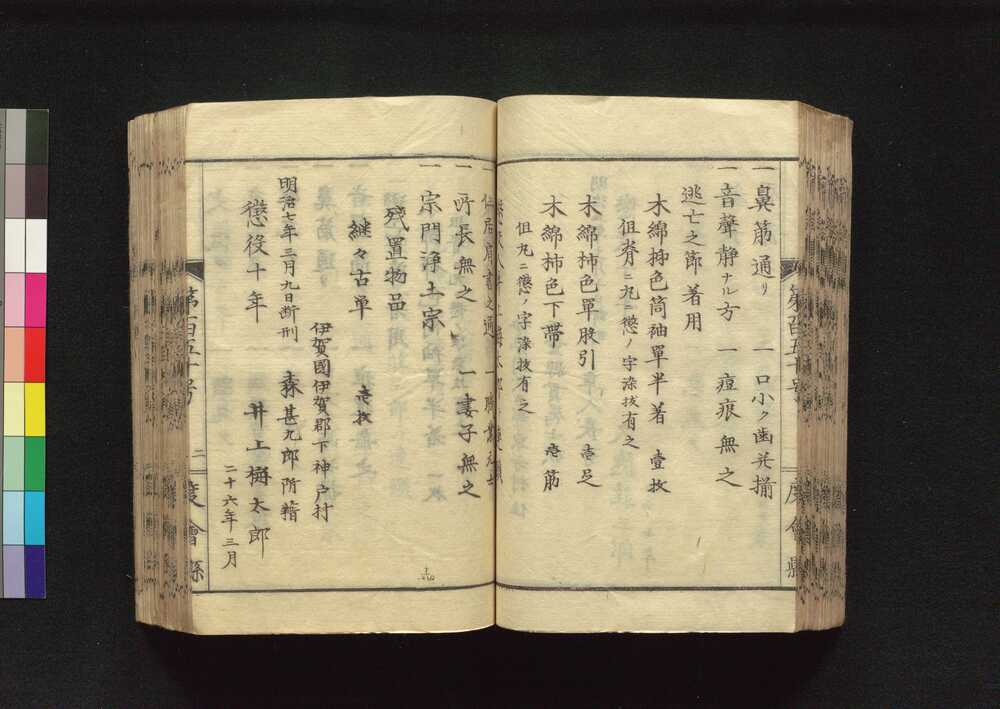 一鼻筋通リ　一口小ク歯並揃
一音聲静ナル方　一痘痕無之
逃亡之節着用
木綿柿色筒袖單半着　壹枚
但脊ニ九ニ懲ノ字染拔有之
木綿柿色單股引　壱足
木綿柿色下帶　壱筋
但九ニ懲ノ字染拔有之
一所長無之　一妻子無之
一宗門浄土宗
残置物品
継々古単　壱枚
伊賀國伊賀郡下神戸村
明治七年三月九日断刑　森甚九郎附籍
懲役十年　井上梅太郎
二十六年三月
第百五十号　二　度會縣
第百五十号　度會縣